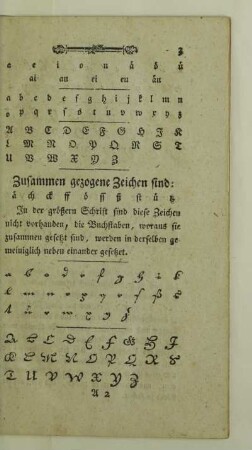 3
a e i o u ä ö ü
ai au ei eu äu
a b c d e f g h i j k l m n
o p q r ſ s t u v w x y z
A B C D E F G H J K
L M N O P Q R S T
U V W X Y Z
Zuſammen gezogene Zeichen ſind:
ä ch ck ff ö ſſ ß ſt ü tz
In der größern Schrift ſind dieſe Zeichen
nicht vorhanden, die Buchſtaben, woraus ſie
zuſammen geſetzt ſind, werden in derſelben ge-
meiniglich neben einander geſetzet.
T U V W X Y Z
A 2